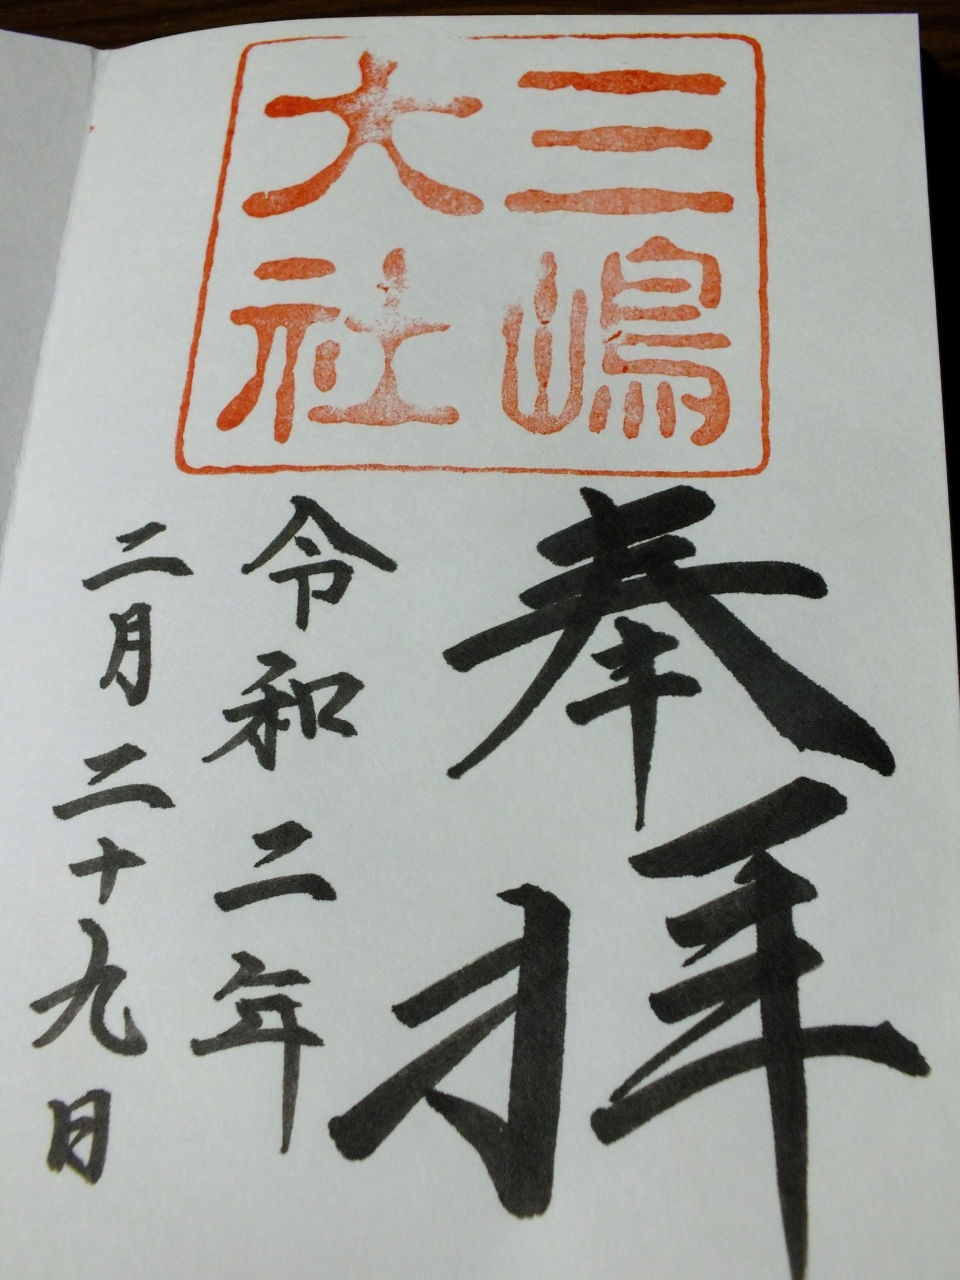 三嶋
大社
奉拝
令和二年
二月二十九日